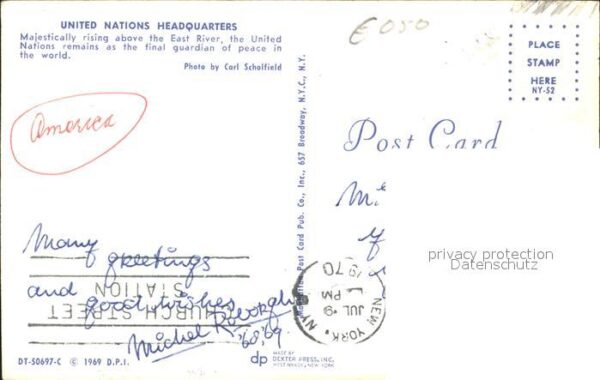 UNITED NATIONS HEADQUARTERS
Majestically rising above the East River, the United
Nations remains as the final guardian of peace in
the world.
Photo by Carl Scholfield
America
Many
greetings
and good wishes
Michel
CHURCH STREET
STATION
DT-50697-C © 1969 D.P.I.
Post Card Pub. Co., Inc., 657 Broadway, N.Y.C., N.Y.
dp
MADE BY
DEXTER PRESS, INC.
WEST NYACK, NEW YORK
E050
PLACE
STAMP
HERE
NY-52
Post Card
privacy protection
Datenschutz
NEW YORK, NY
PM
JUL 9
1970